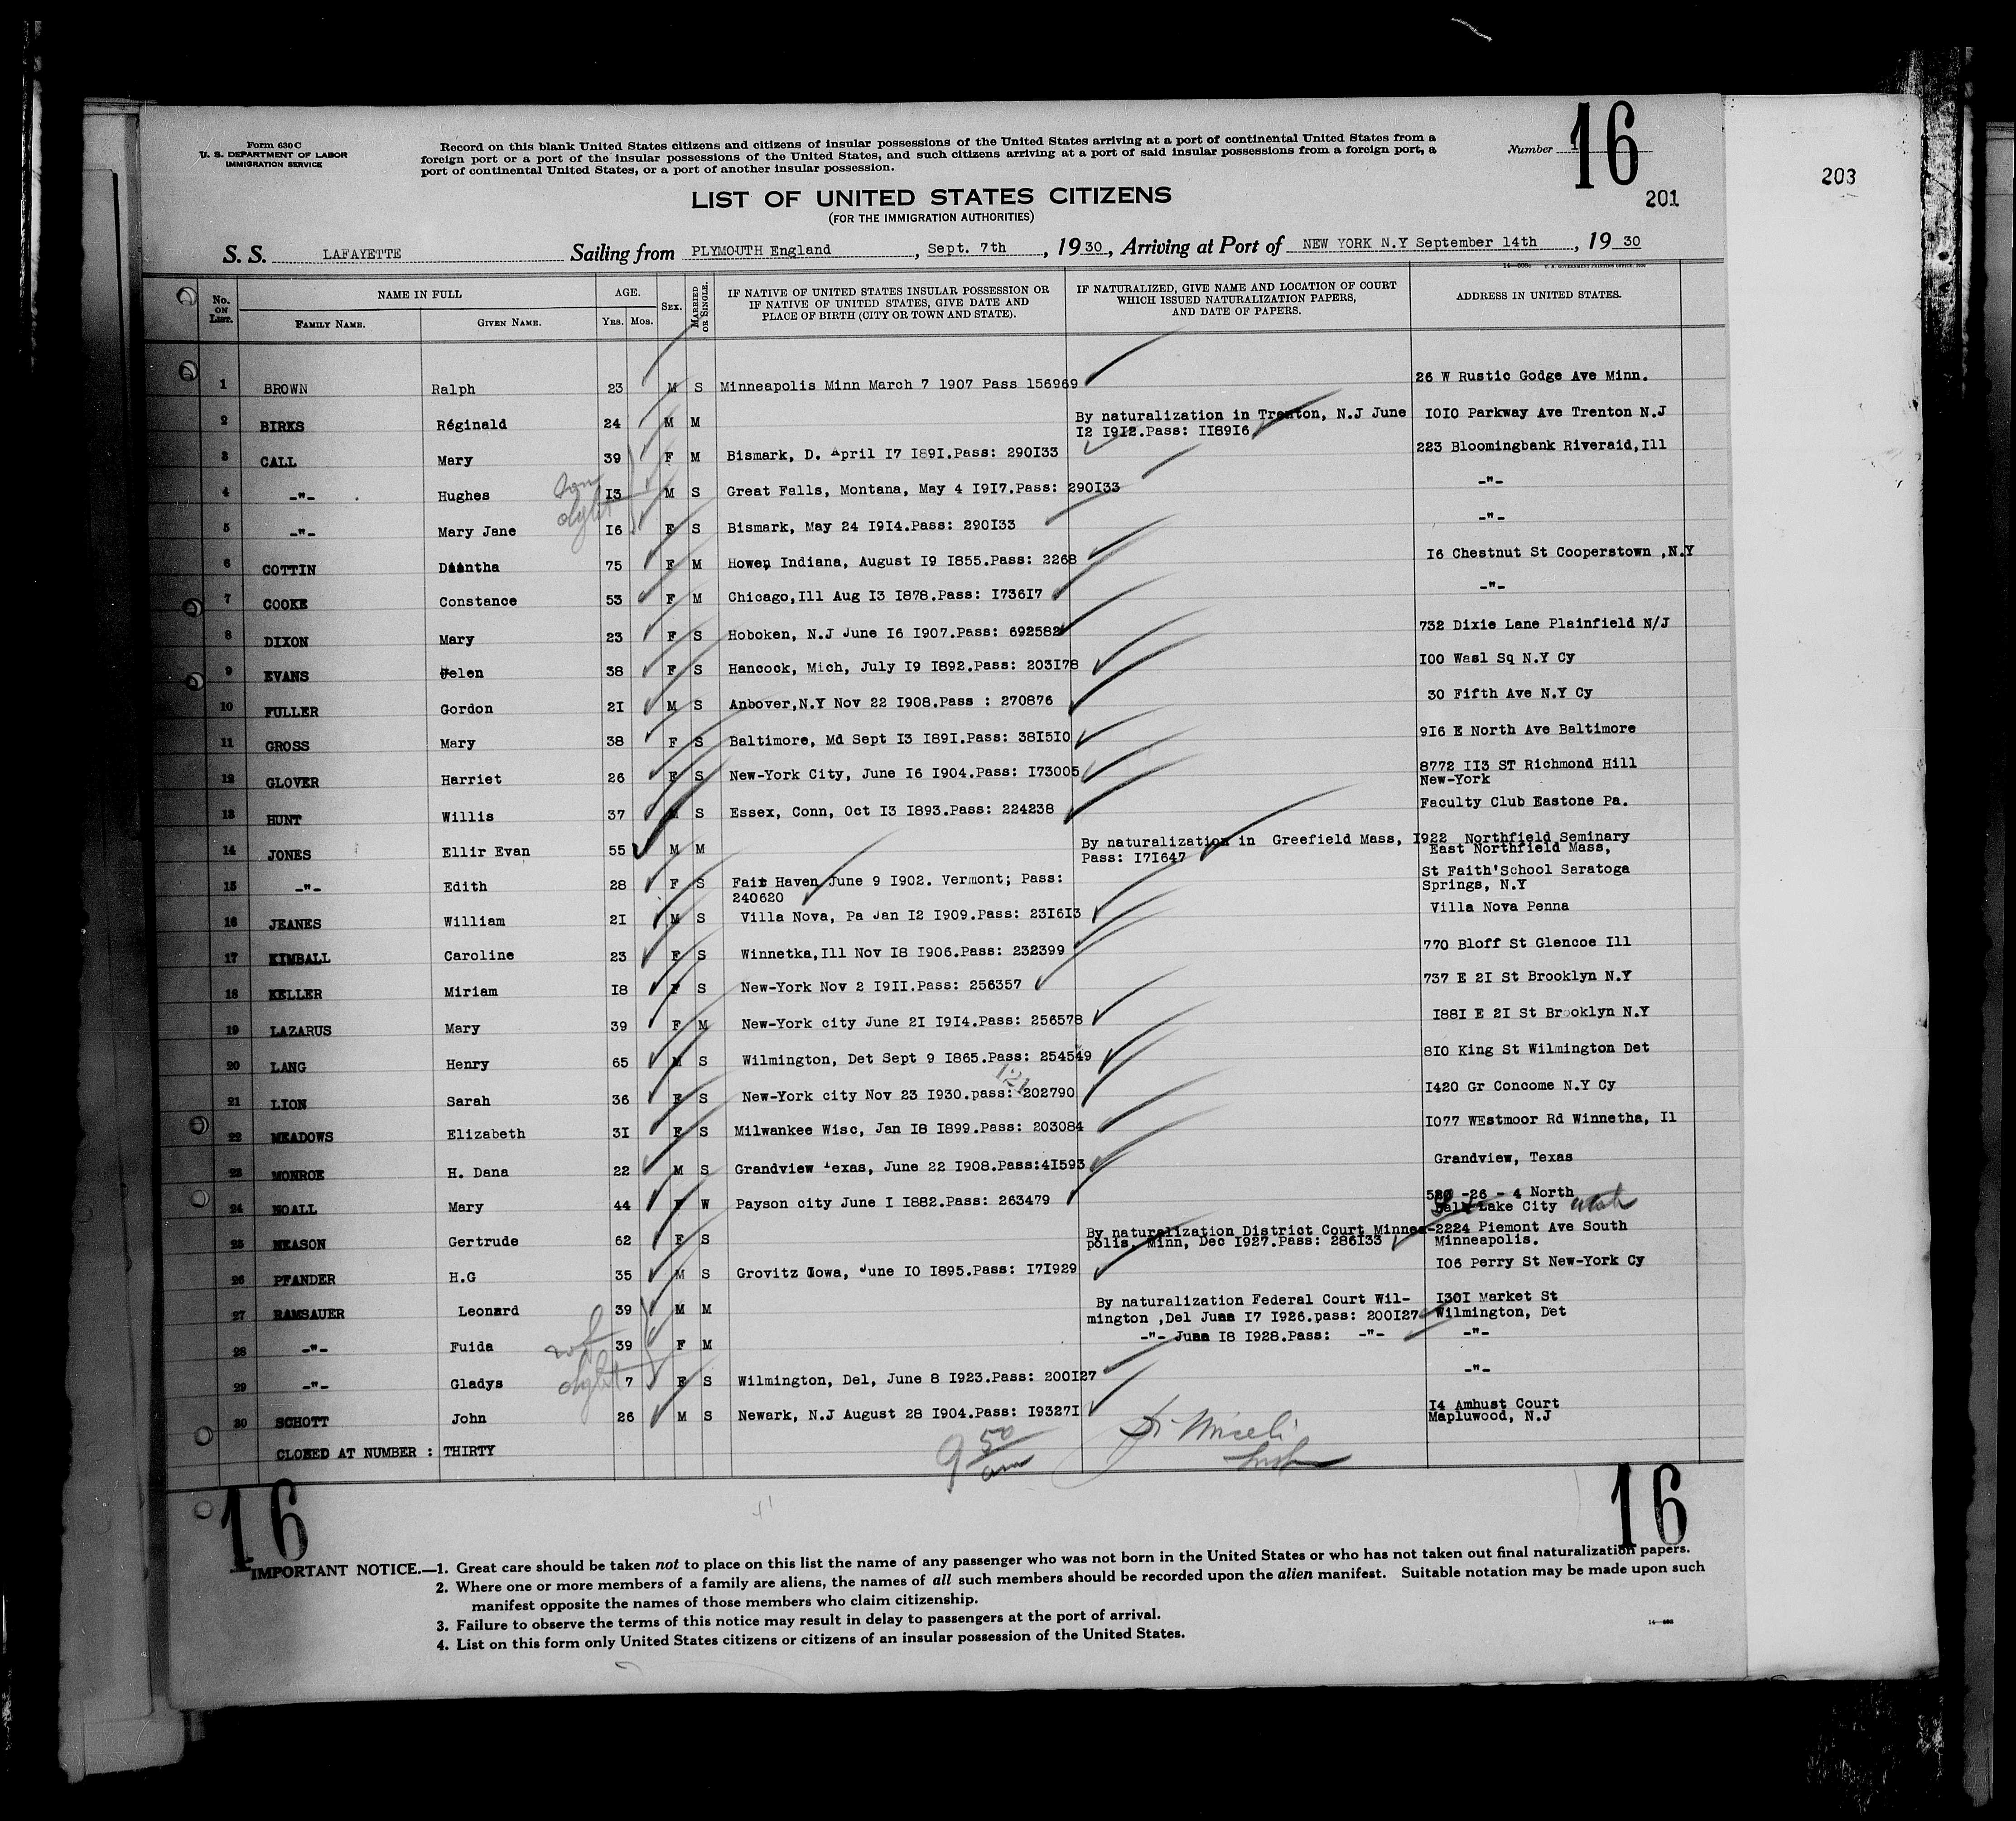 Form 630 C
U. S. DEPARTMENT OF LABOR
IMMIGRATION SERVICE
Record on this blank United States citizens and citizens of insular possessions of the United States arriving at a port of continental United States from a
foreign port or a port of the insular possessions of the United States, and such citizens arriving at a port of said insular possessions from a foreign port, a
port of continental United States, or a port of another insular possession.
Number 16
201
203
LIST OF UNITED STATES CITIZENS
(FOR THE IMMIGRATION AUTHORITIES)
S. S. LAFAYETTE Sailing from PLYMOUTH England, Sept. 7th, 1930, Arriving at Port of NEW YORK N.Y September 14th, 19 30
No. ON LIST. NAME IN FULL AGE. SEX. MARRIED OR SINGLE. IF NATIVE OF UNITED STATES INSULAR POSSESSION OR IF NATIVE OF UNITED STATES, GIVE DATE AND PLACE OF BIRTH (CITY OR TOWN AND STATE). IF NATURALIZED, GIVE NAME AND LOCATION OF COURT WHICH ISSUED NATURALIZATION PAPERS, AND DATE OF PAPERS. ADDRESS IN UNITED STATES.
FAMILY NAME. GIVEN NAME. YRS. MOS.
1 BROWN Ralph 23 M S Minneapolis Minn March 7 1907 Pass 156969 26 W Rustic Godge Ave Minn.
2 BIRKS Réginald 24 M M By naturalization in Trenton, N.J June I2 I9I2.Pass: II89I6 I0I0 Parkway Ave Trenton N.J
3 CALL Mary 39 F M Bismark, D. April I7 I89I.Pass: 290I33 223 Bloomingbank Riveraid,Ill
4 -"- Hughes I3 M S Great Falls, Montana, May 4 I9I7.Pass: 290I33 -"-
5 -"- Mary Jane I6 F S Bismark, May 24 I9I4.Pass: 290I33 -"-
6 COTTIN Diantha 75 F M Howen Indiana, August I9 I855.Pass: 2268 I6 Chestnut St Cooperstown ,N.Y
7 COOKE Constance 53 F M Chicago,Ill Aug I3 I878.Pass: I736I7 -"-
8 DIXON Mary 23 F S Hoboken, N.J June I6 I907.Pass: 692582 732 Dixie Lane Plainfield N/J
9 EVANS Helen 38 F S Hancock, Mich, July I9 I892.Pass: 203I78 I00 Wasl Sq N.Y Cy
10 FULLER Gordon 2I M S Anbover,N.Y Nov 22 I908.Pass : 270876 30 Fifth Ave N.Y Cy
11 GROSS Mary 38 F S Baltimore, Md Sept I3 I89I.Pass: 38I5I0 9I6 E North Ave Baltimore
12 GLOVER Harriet 26 F S New-York City, June I6 I904.Pass: I73005 8772 II3 ST Richmond Hill New-York
13 HUNT Willis 37 M S Essex, Conn, Oct I3 I893.Pass: 224238 Faculty Club Eastone Pa.
14 JONES Ellir Evan 55 M M By naturalization in Greefield Mass, I922 Pass: I7I647 Northfield Seminary East Northfield Mass,
15 -"- Edith 28 F S Fair Haven June 9 I902. Vermont; Pass: 240620 St Faith'School Saratoga Springs, N.Y
16 JEANES William 2I M S Villa Nova, Pa Jan I2 I909.Pass: 23I6I3 Villa Nova Penna
17 KIMBALL Caroline 23 F S Winnetka,Ill Nov I8 I906.Pass: 232399 770 Bloff St Glencoe Ill
18 KELLER Miriam I8 F S New-York Nov 2 I9II.Pass: 256357 737 E 2I St Brooklyn N.Y
19 LAZARUS Mary 39 F M New-York city June 2I I9I4.Pass: 256578 I88I E 2I St Brooklyn N.Y
20 LANG Henry 65 M S Wilmington, Det Sept 9 I865.Pass: 254549 8I0 King St Wilmington Det
121
21 LION Sarah 36 F S New-York city Nov 23 I930.pass: 202790 I420 Gr Concome N.Y Cy
22 MEADOWS Elizabeth 3I F S Milwankee Wisc, Jan I8 I899.Pass: 203084 I077 WEstmoor Rd Winnetha, Il
23 MONROE H. Dana 22 M S Grandview Texas, June 22 I908.Pass:4I593 Grandview, Texas
24 NOALL Mary 44 F W Payson city June I I882.Pass: 263479 -26 - 4 North Salt Lake City Utah
25 NEASON Gertrude 62 F S By naturalization District Court Minnea- polis, Minn, Dec I927.Pass: 286I33 2224 Piemont Ave South Minneapolis.
26 PFANDER H.G 35 M S Grovitz Iowa, June I0 I895.Pass: I7I929 I06 Perry St New-York Cy
27 RAMSAUER Leonard 39 M M By naturalization Federal Court Wil- mington ,Del June I7 I926.pass: 200I27 I30I Market St Wilmington, Det
28 -"- Fuida 39 F M -"- June I8 I928.Pass: -"- -"-
29 -"- Gladys 7 F S Wilmington, Del, June 8 I923.Pass: 200I27 -"-
30 SCHOTT John 26 M S Newark, N.J August 28 I904.Pass: I9327I I4 Amhust Court Mapluwood, N.J
CLOSED AT NUMBER : THIRTY
9 50 am
16 16
IMPORTANT NOTICE.—1. Great care should be taken not to place on this list the name of any passenger who was not born in the United States or who has not taken out final naturalization papers.
2. Where one or more members of a family are aliens, the names of all such members should be recorded upon the alien manifest. Suitable notation may be made upon such
manifest opposite the names of those members who claim citizenship.
3. Failure to observe the terms of this notice may result in delay to passengers at the port of arrival.
4. List on this form only United States citizens or citizens of an insular possession of the United States.